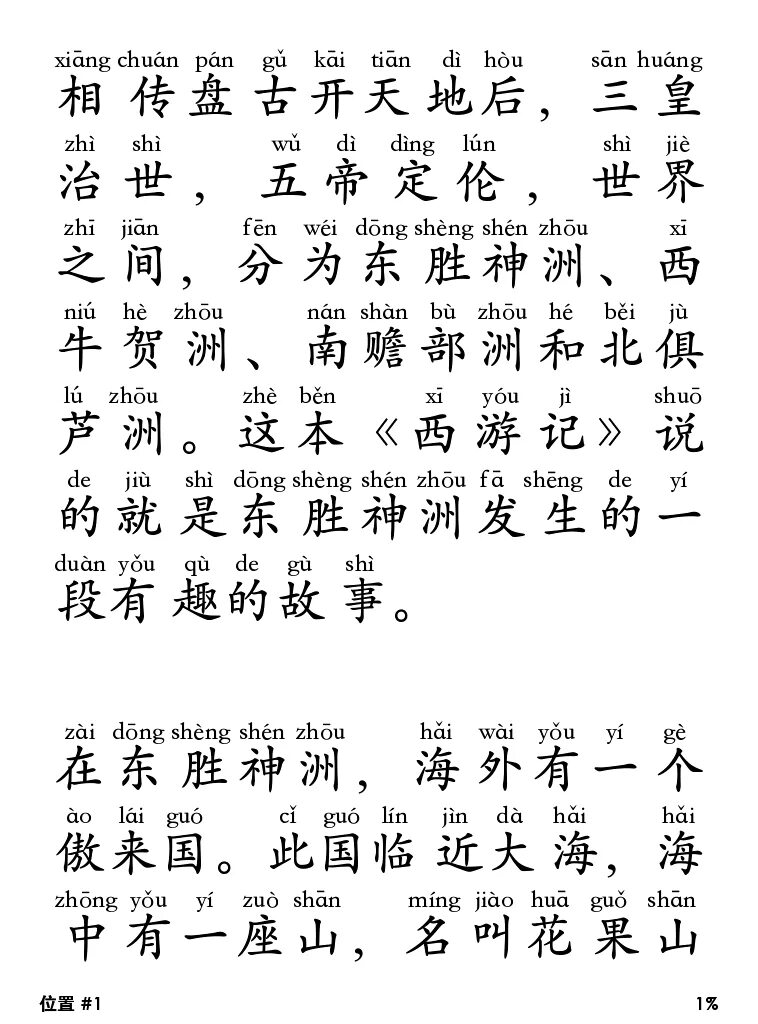 xiāng chuán pán gǔ kāi tiān dì hòu sān huáng
相传盘古开天地后，三皇
zhì shì wǔ dì dìng lún shì jiè
治世，五帝定伦，世界
zhī jiān fēn wéi dōng shèng shén zhōu xī
之间，分为东胜神洲、西
niú hè zhōu nán shàn bù zhōu hé běi jù
牛贺洲、南赡部洲和北俱
lú zhōu zhè běn xī yóu jì shuō
芦洲。这本《西游记》说
de jiù shì dōng shèng shén zhōu fā shēng de yí
的就是东胜神洲发生的一
duàn yǒu qù de gù shì
段有趣的故事。
zài dōng shèng shén zhōu hǎi wài yǒu yí gè
在东胜神洲，海外有一个
ào lái guó cǐ guó lín jìn dà hǎi hǎi
傲来国。此国临近大海，海
zhōng yǒu yí zuò shān míng jiào huā guǒ shān
中有一座山，名叫花果山
位置 #1 1%